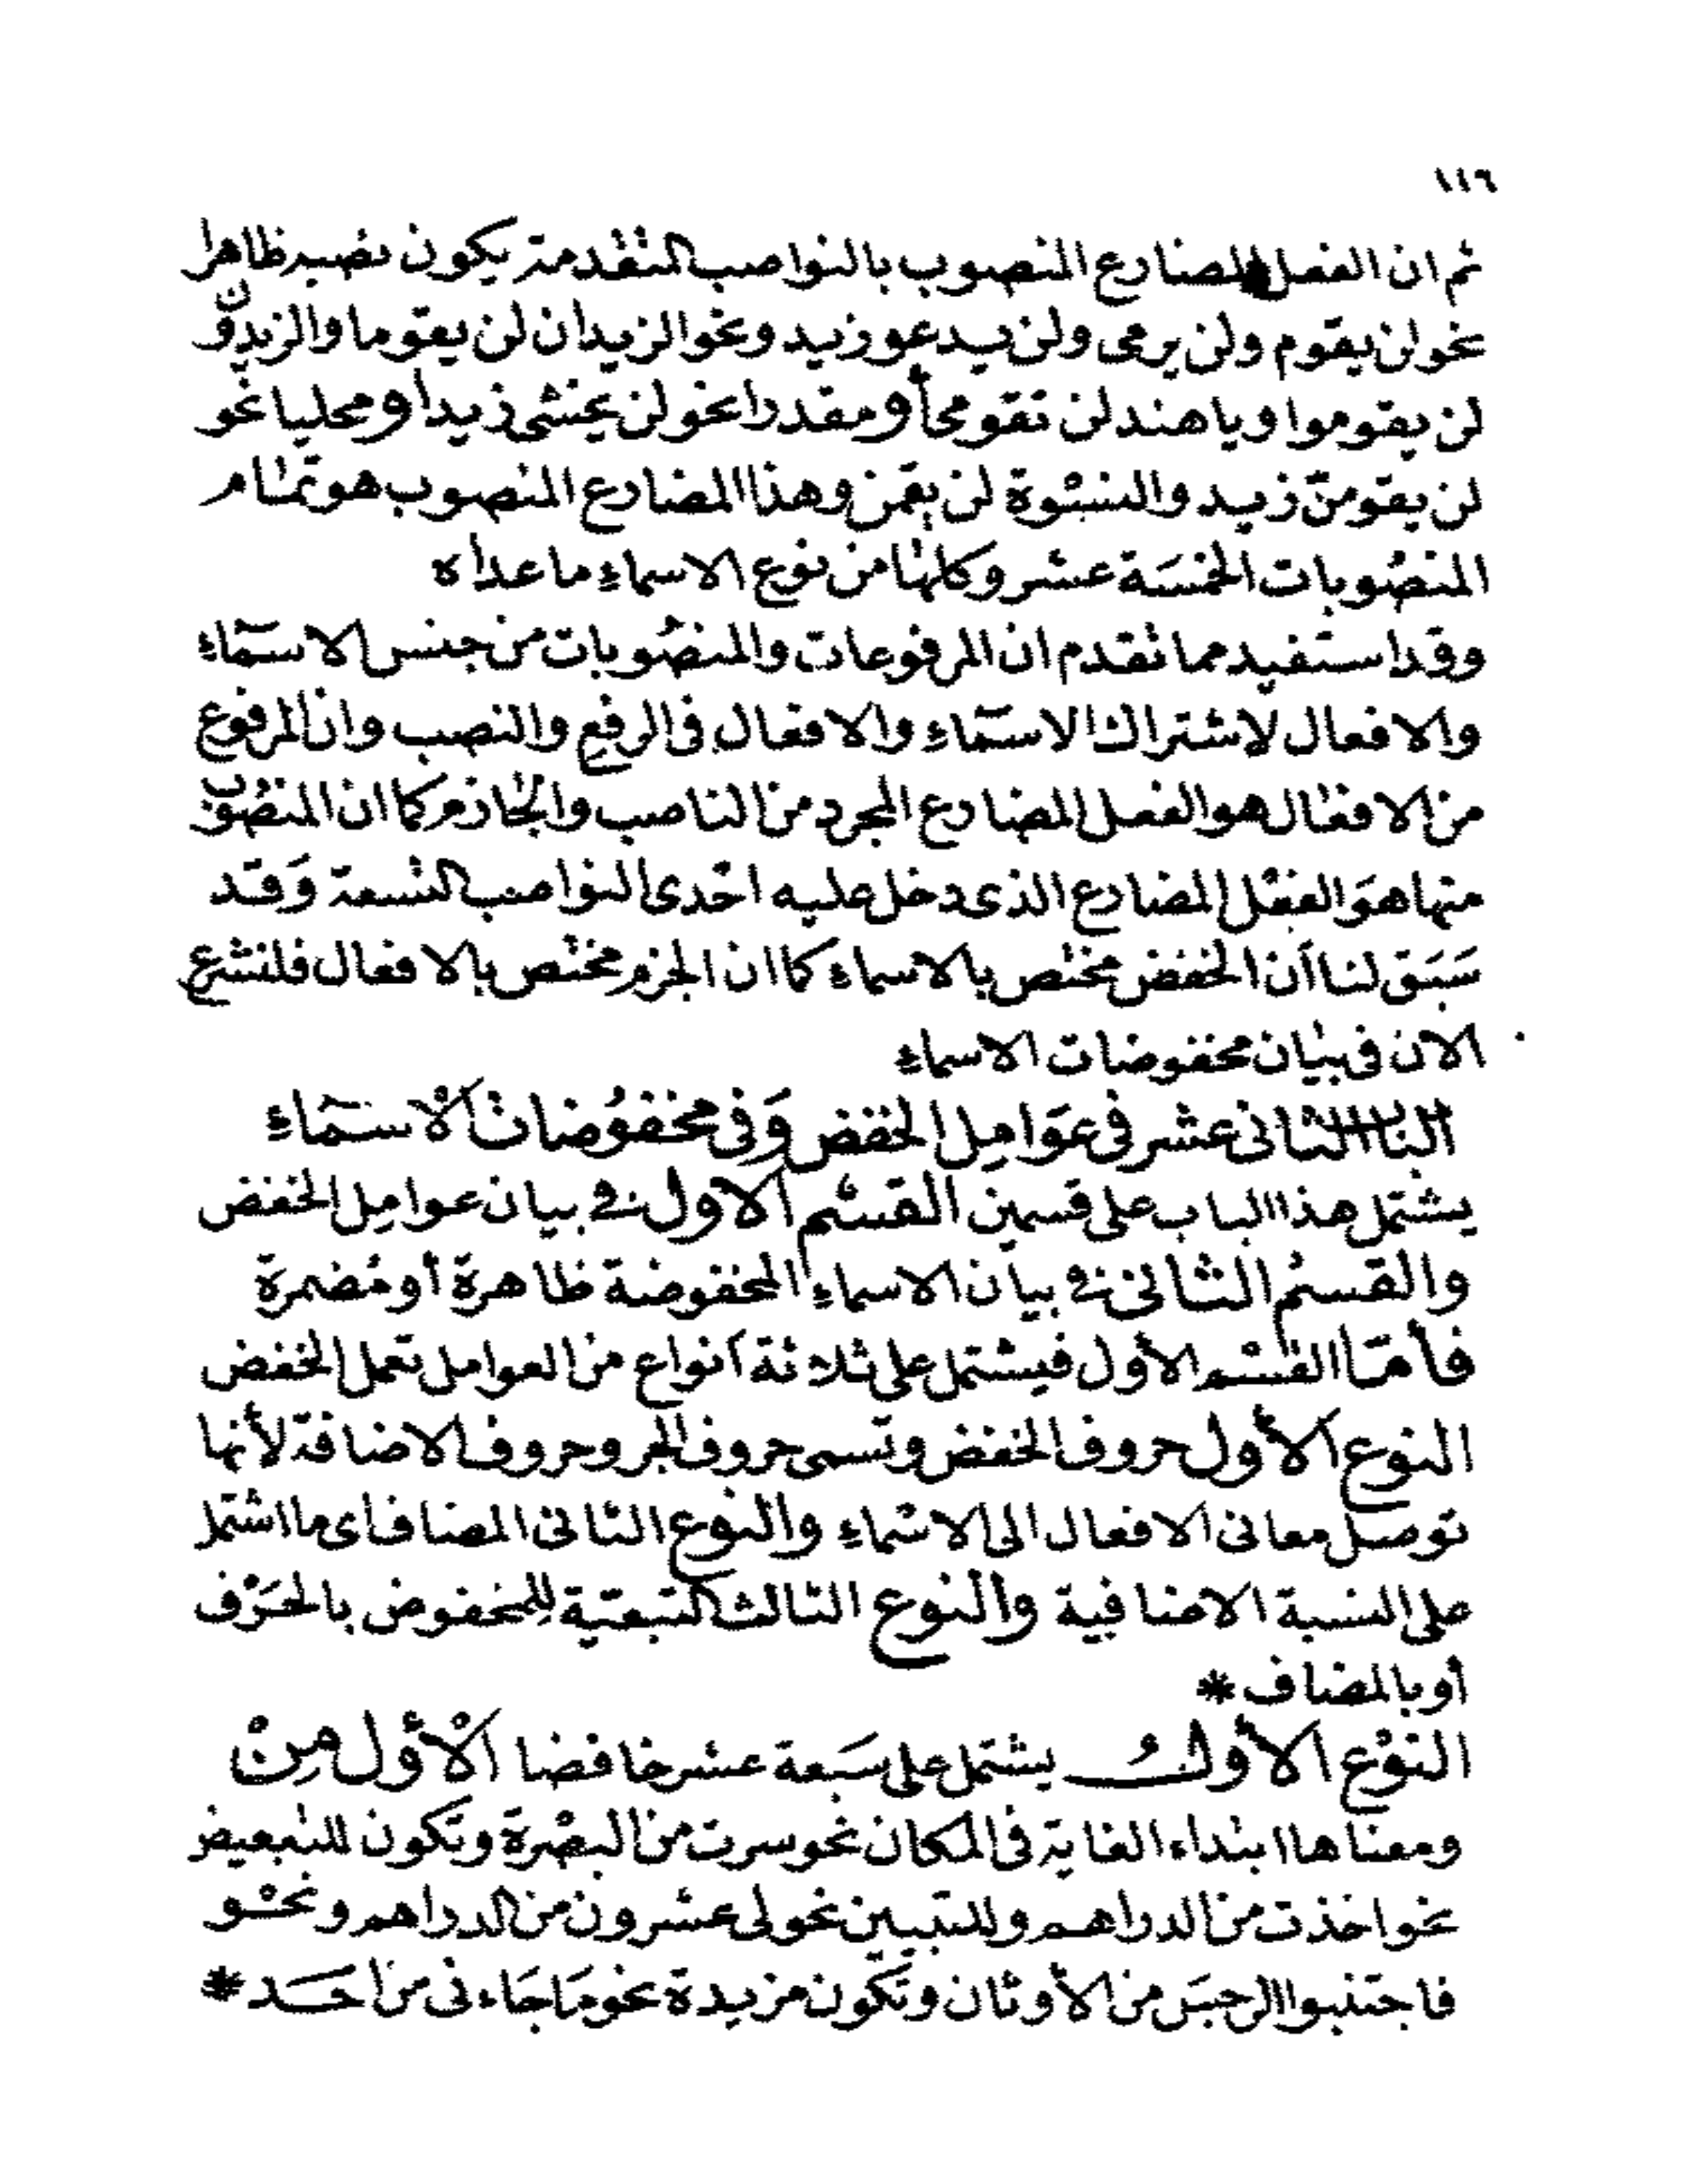 ١١٦
ثم ان الفعل المضارع المنصوب بالنواصب المتقدمة يكون نصبه ظاهرا
نحو لن يقوم ولن يرمى ولن يدعو زيد ونحو الزيدان لن يقوما والزيدون
لن يقوموا ويا هند لن تقومى أو مقدرا نحو لن يخشى زيد أو محليا نحو
لن يقومنّ زيد والنسْوة لن يقمن وهذا المضارع المنصوب هو تمام
المنصُوبات الخمسَة عشر وكلها من نوع الاسماءِ ما عداه
وقد استفيد مما تقدم ان المرفوعات والمنصُوبات من جنس الاسمَاءِ
والافعال لاشتراك الاسمَاءِ والافعال فى الرفع والنصب وان المرفوع
من الافعال هو الفعل المضارع المجرد من الناصب والجازم كما ان المنصُوب
منها هوَ الفعْل المضارع الذى دخل عليه احدى النواصب التسعة وَقد
سَبَق لنا أن الخفض مختص بالاسماءِ كما ان الجزم مختص بالافعال فلنشرع
الان فى بيان مخفوضات الاسماءِ
الباب الثانى عشر فى عوَامِل الخفض وَفى مخفوُضات الْاسمَاءِ
يشتمل هذا الباب على قسمين القسْم الاول فى بيان عوامِل الخفض
والقسمُ الثانى فى بيان الاسماءِ المخفوضة ظاهرة أو مُضمرة
فأمّا القسْم الأول فيشتمل على ثلاثة أنواع من العوامل تعمل الخفض
النوع الأول حروف الخفض وتسمى حروف الجر وحروف الاضافة لأنها
توصل معانى الافعال الى الاسْماءِ والنوع الثانى المضاف اى ما اشتمل
على النسبة الاضافية والنوع الثالث التبعيّة للمخفوض بالحَرْف
أو بالمضاف *
النوْع الأولُ يشتمل على سَبعة عشر خافضا الْأوْل مِنْ
ومعناها ابتداء الغاية فى المكان نحو سرت من البصْرة وتكون للتبعيض
نحو اخذت من الدراهم وللتبيين نحو لى عشرون من الدراهم ونحْو
فاجتنبوا الرجسَ من الأوثان وتكون مزيدة نحو مَا جَاءنى من احَد *